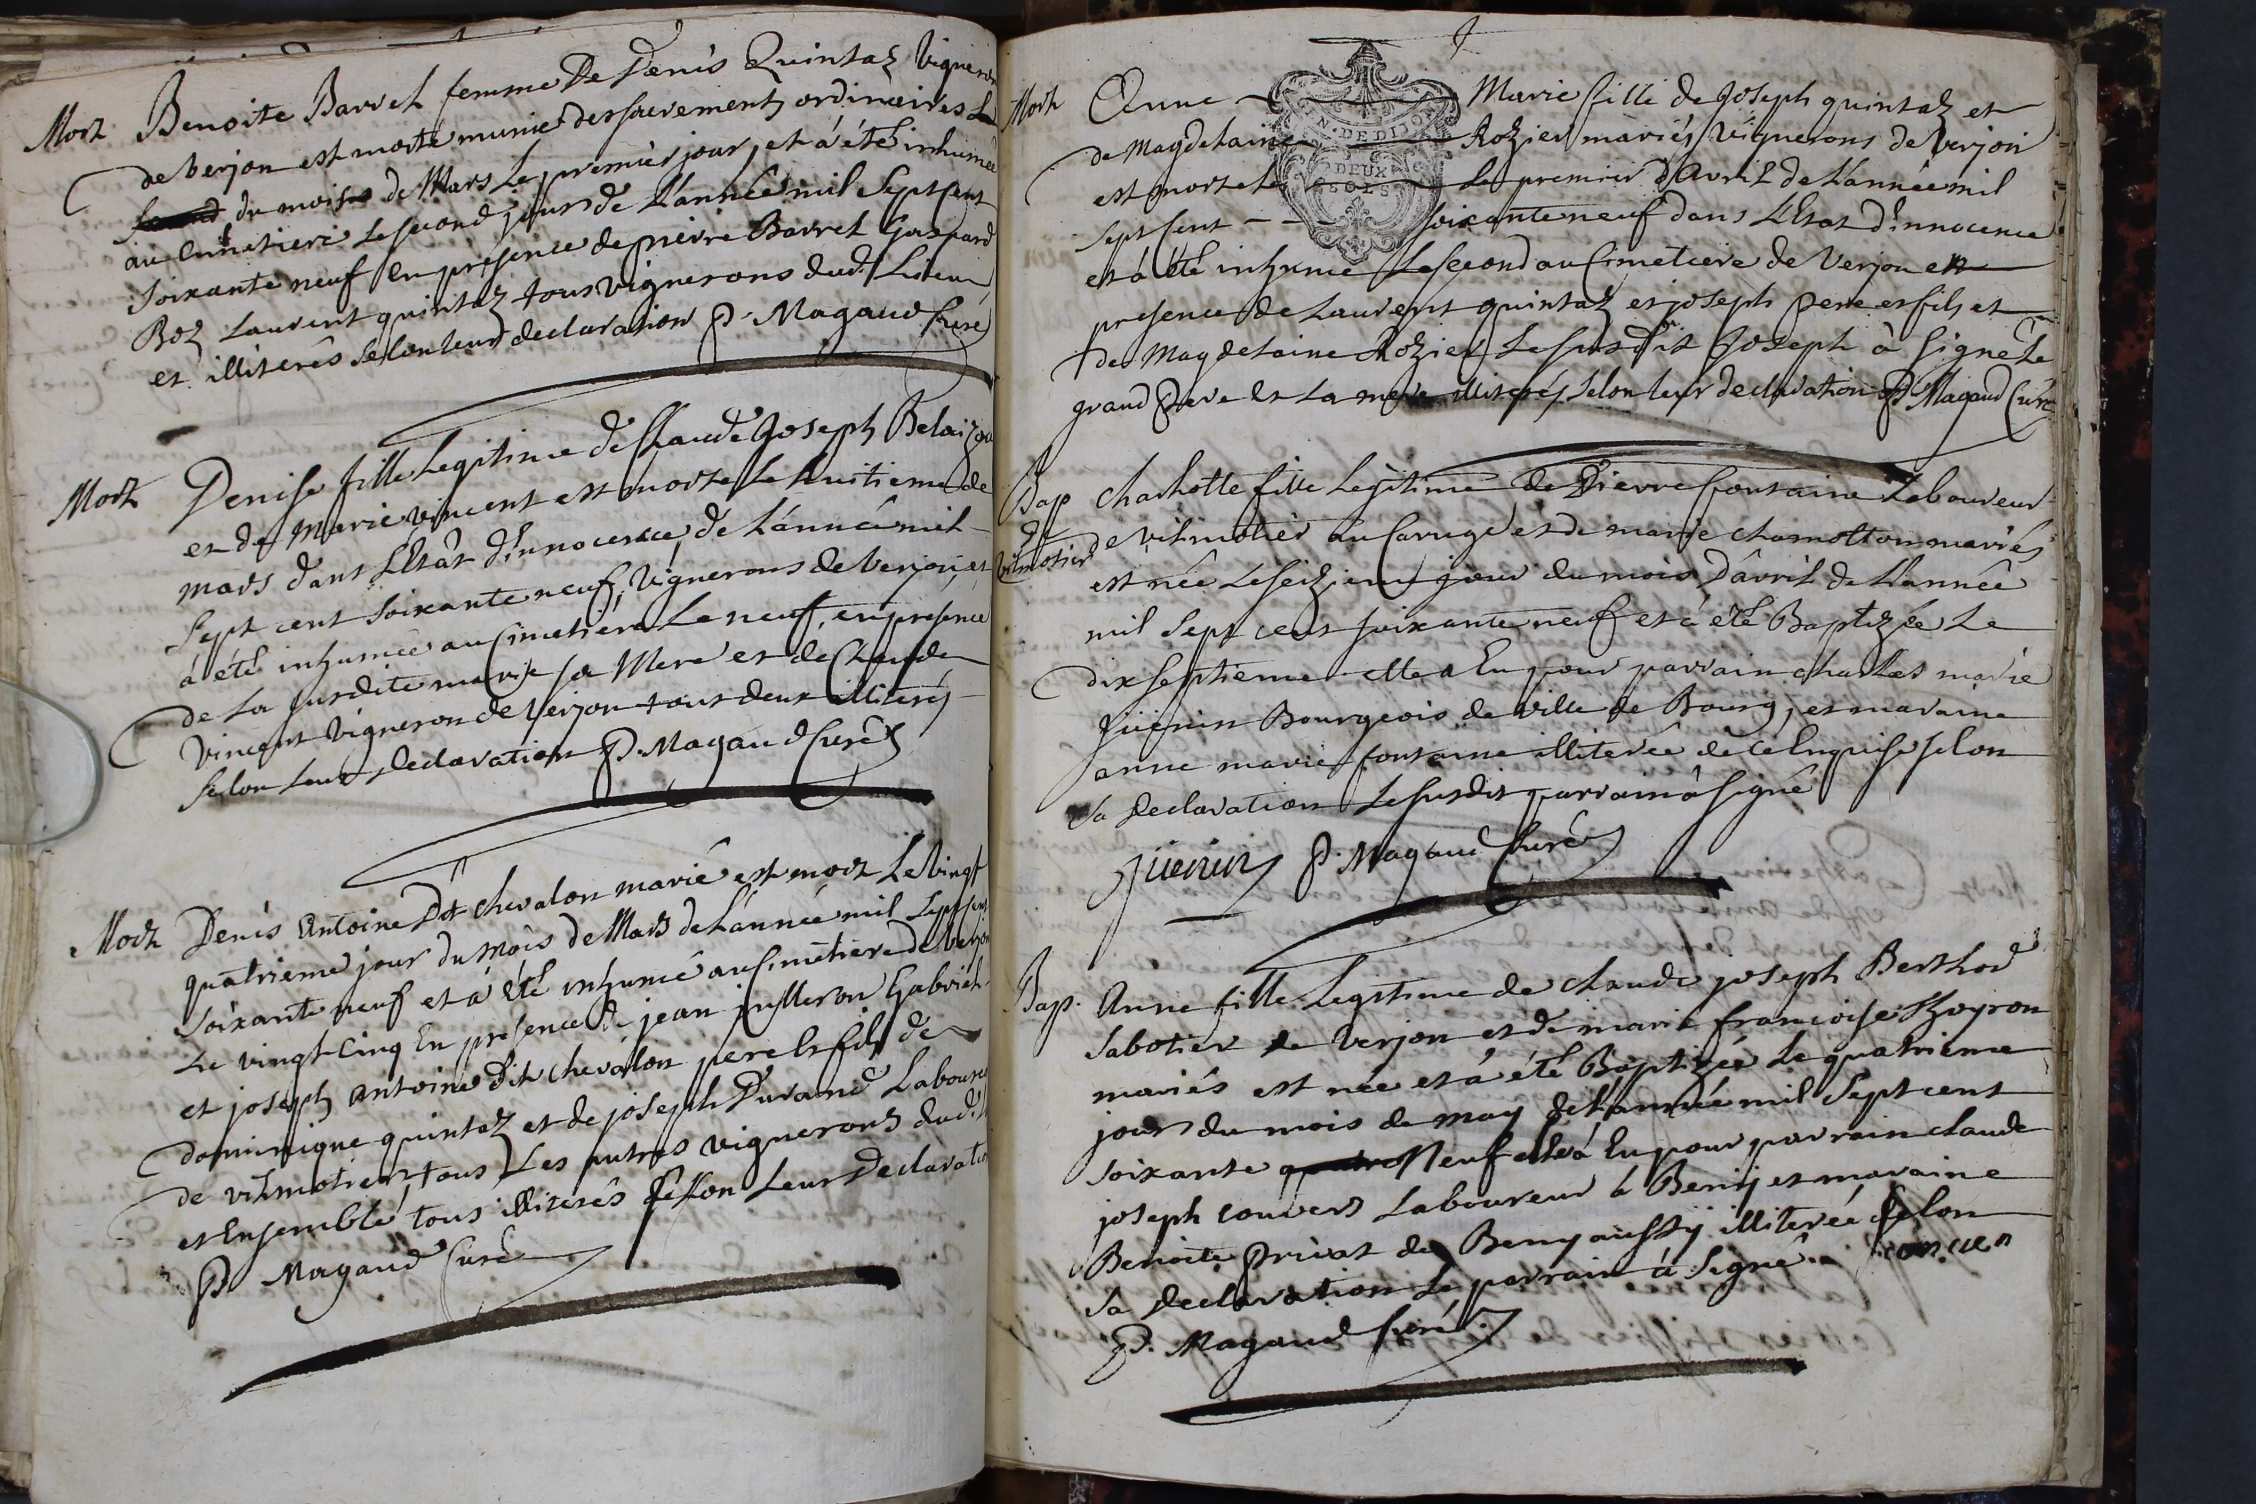 Mort Benoite Barret femme De Denis Quintaz Vigneron
de Verjon est morte munie des sacrements ordinaires Le
du mois de Mars Le premier jour, et à été inhumée
au Cimetiere Le second jour de L'année mil Sept Cent
Soixante neuf En presence de pierre Barret Gaspard
Boz Laurent quintaz tous vignerons dud. Lieu
et illiterés Selon leur declaration P. Magaud Curé
Mort Denise fille Legitime de Claude Joseph
et de Marie Vincent est morte Le huitieme de
mars dans L'Etat D'innocence, de L'année mil
Sept cent Soixante neuf, Vignerons de Verjon, et
à été inhumée au Cimetiere Le neuf, en presence
de La susdite marie sa Mere et de Claude
Vincent Vigneron de Verjon tous deux illiterés
Selon Leur declaration P. Magaud Curé
Mort Denis Antoine Dit Chevalon marié est mort Le Vingt
quatrieme jour du mois de Mars de L'année mil Sept Cent
Soixante neuf et à été inhumé au Cimetiere de Verjon
Le vingt Cinq En presence de jean Gabriel
et joseph Antoine dit Chevalon pere et fils de
dominique quintaz et de joseph Durand Laboureur
de vilmotier, tous Les autres vignerons dud.
et Ensemble, tous illiterés Selon Leur Declaration
P. Magaud Curé
N. DE DIJON
DEUX
SOLS
Mort Anne Marie fille de Joseph quintaz et
de Magdelaine Rozier mariés Vignerons de Verjon
est morte Le Le premier d'Avril de L'année mil
Sept Cent Soixante neuf dans L'Etat D'innocence
et à été inhumée Le second au Cimetiere de Verjon en
presence de Laurent quintaz et joseph pere et fils et
de Magdelaine Rozier Le susdit Joseph à signé Le
grand Pere et La mere illiterés selon leur declaration P. Magaud Curé
Bap de vilmotier Charlotte fille Legitime de Pierre fontaine Laboureur
de vilmotier au Carruge et de marie chamotton mariés
est née Le seizieme jour du mois D'avril de L'année
mil Sept cent soixante neuf et à été Baptizée Le
dix septieme elle a Eu pour parrain charles marie
Juenin Bourgeois de ville de Bourg, et maraine
anne marie fontaine illiterée de ce Enquise selon
sa declaration Le susdit parrain à signé
Juenin P. Magaud Curé
Bap. Anne fille Legitime de Claude joseph Berthod
Sabotier de Verjon et de marie francoise
mariés est née et à été Baptizée Le quatrieme
jour du mois de may de L'année mil Sept cent
Soixante quatre Neuf elle à Eu pour parrain Claude
joseph convers Laboureur à Beny et maraine
Benoite Privat de Beny aussy illiterée Selon
sa declaration Le parrain à signé
P. Magaud Curé